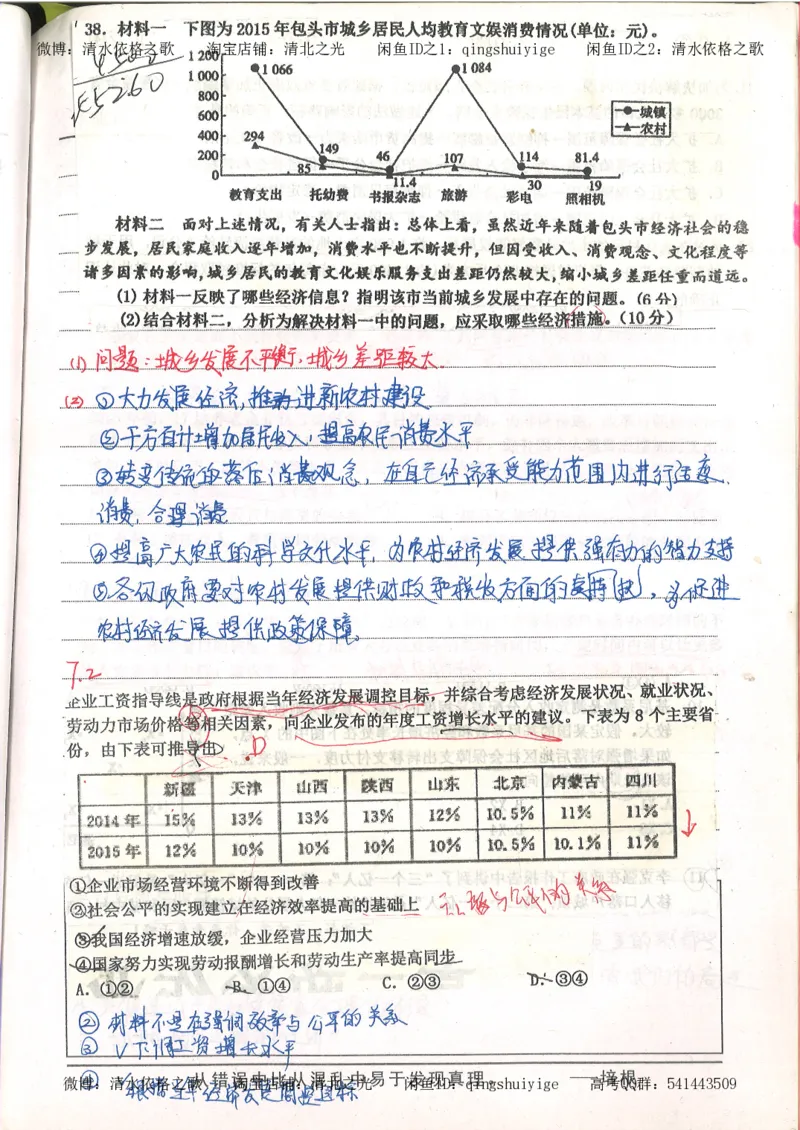 38. 材料一 下图为 2015 年包头市城乡居民人均教育文娱消费情况(单位: 元)。
微博: 清水依格之歌 淘宝店铺: 清北之光 闲鱼ID之1: qingshuiyige 闲鱼ID之2: 清水依格之歌
1 200
1 000
800
600
400
200
0
1 066
1 084
294
149
85
46
11.4
107
114
30
81.4
19
城镇
农村
教育支出 托幼费 书报杂志 旅游 彩电 照相机
材料二 面对上述情况,有关人士指出: 总体上看,虽然近年来随着包头市经济社会的稳
步发展,居民家庭收入逐年增加,消费水平也不断提升,但因受收入、消费观念、文化程度等
诸多因素的影响,城乡居民的教育文化娱乐服务支出差距仍然较大,缩小城乡差距任重而道远。
(1) 材料一反映了哪些经济信息? 指明该市当前城乡发展中存在的问题。(6 分)
(2)结合材料二,分析为解决材料一中的问题,应采取哪些经济措施。(10 分)
(1) 问题: 城乡发展不平衡, 城乡差距较大.
(2) ①大力发展经济, 推进新农村建设
②千方百计增加居民收入, 提高农民消费水平
③转变传统的落后消费观念, 在自己经济承受能力范围内进行适度
消费, 合理消费
④提高广大农民的科学文化水平, 为农村经济发展提供强有力的智力支持
⑤各级政府要对农村发展提供财政和税收方面的支持, 促进
农村经济发展提供政策保障.
7.2
企业工资指导线是政府根据当年经济发展调控目标,并综合考虑经济发展状况、就业状况、
劳动力市场价格等相关因素,向企业发布的年度工资增长水平的建议。下表为 8 个主要省
份,由下表可推导出 .D
新疆 天津 山西 陕西 山东 北京 内蒙古 四川
2014 年 15% 13% 13% 13% 12% 10.5% 11% 11%
2015 年 12% 10% 10% 10% 10% 10.5% 10.1% 11%
①企业市场经营环境不断得到改善
②社会公平的实现建立在经济效率提高的基础上
③我国经济增速放缓,企业经营压力加大
④国家努力实现劳动报酬增长和劳动生产率提高同步
A. ①② B. ①④ C. ②③ D. ③④
② 材料不是在强调效率与公平的关系
③ √下调工资增长水平
④ 根据当年经济发展调控目标
从错误中比从混乱中易于发现真理 ——培根
微博: 清水依格之歌 淘宝店铺: 清北之光 闲鱼ID: qingshuiyige 高考QQ群: 541443509